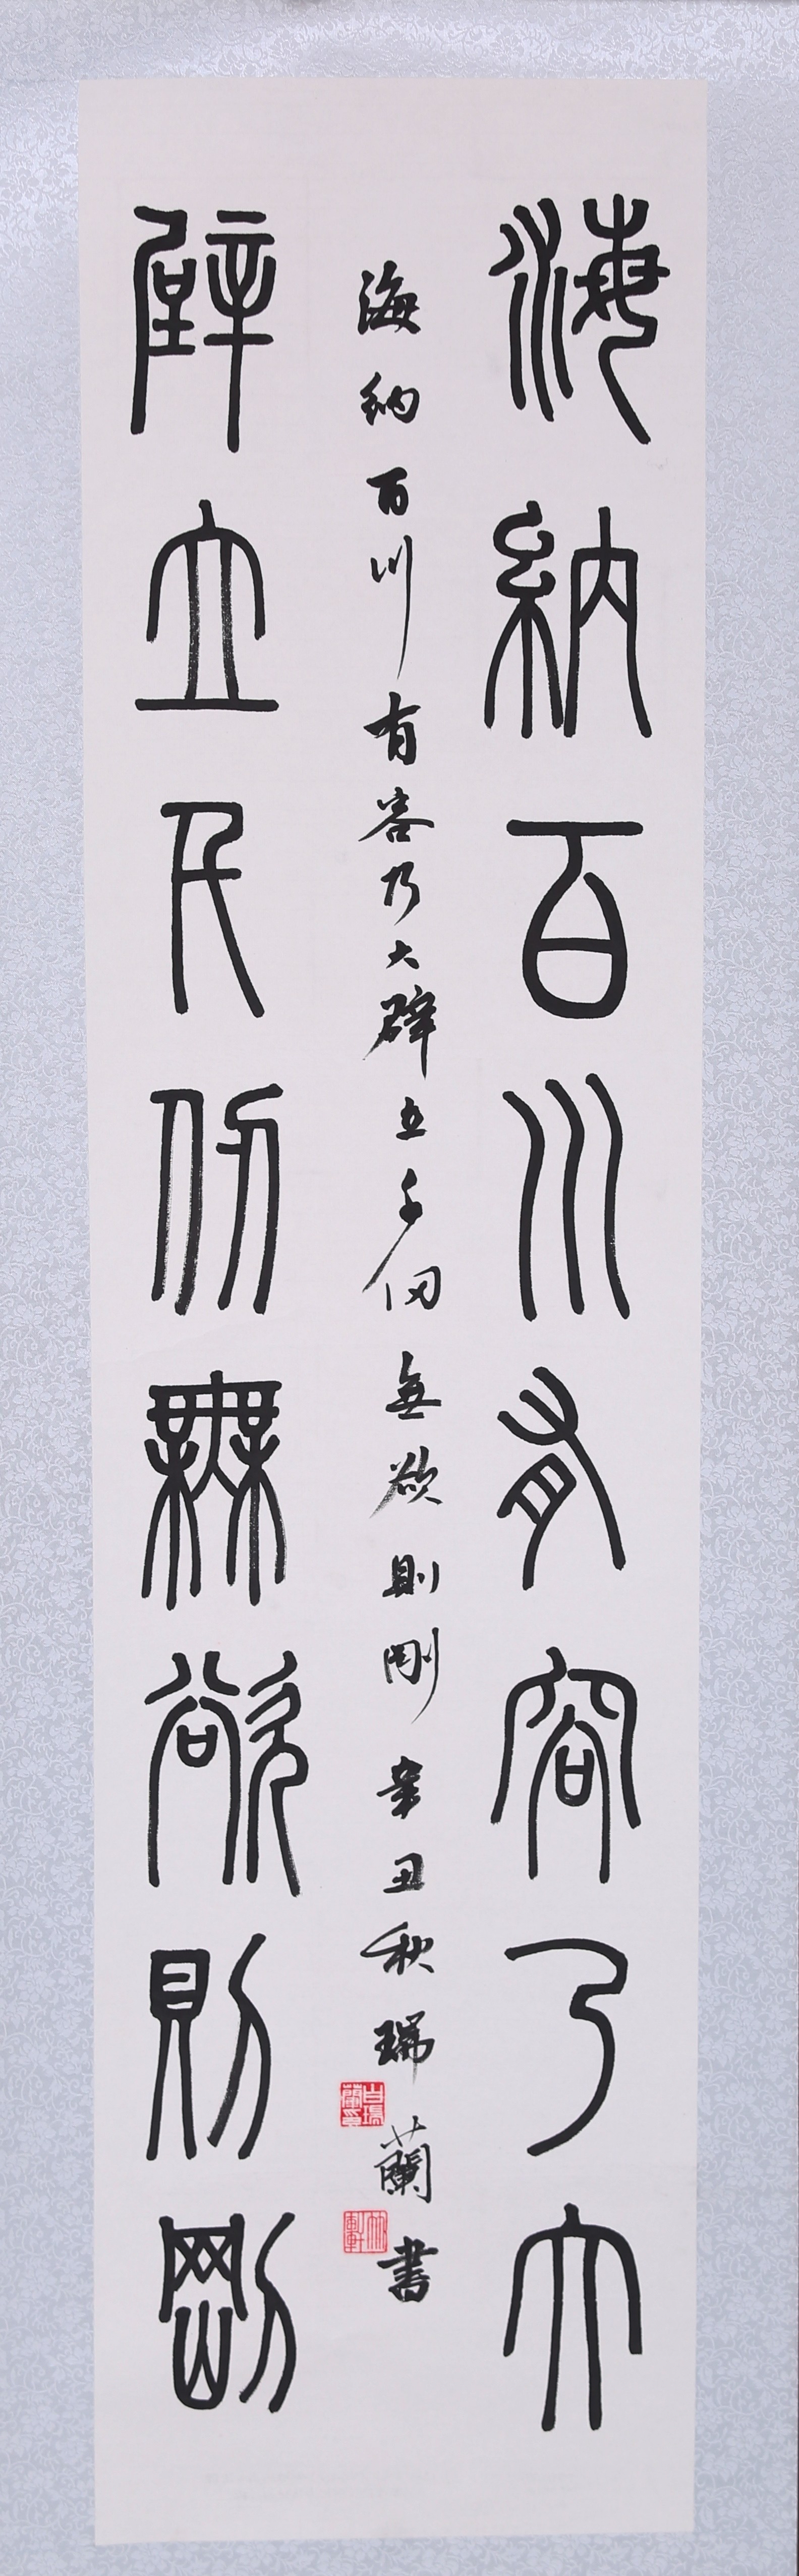 海納百川有容乃大
海納百川有容乃大壁立千仞無欲則剛辛丑秋瑞蘭書
壁立千仞無欲則剛